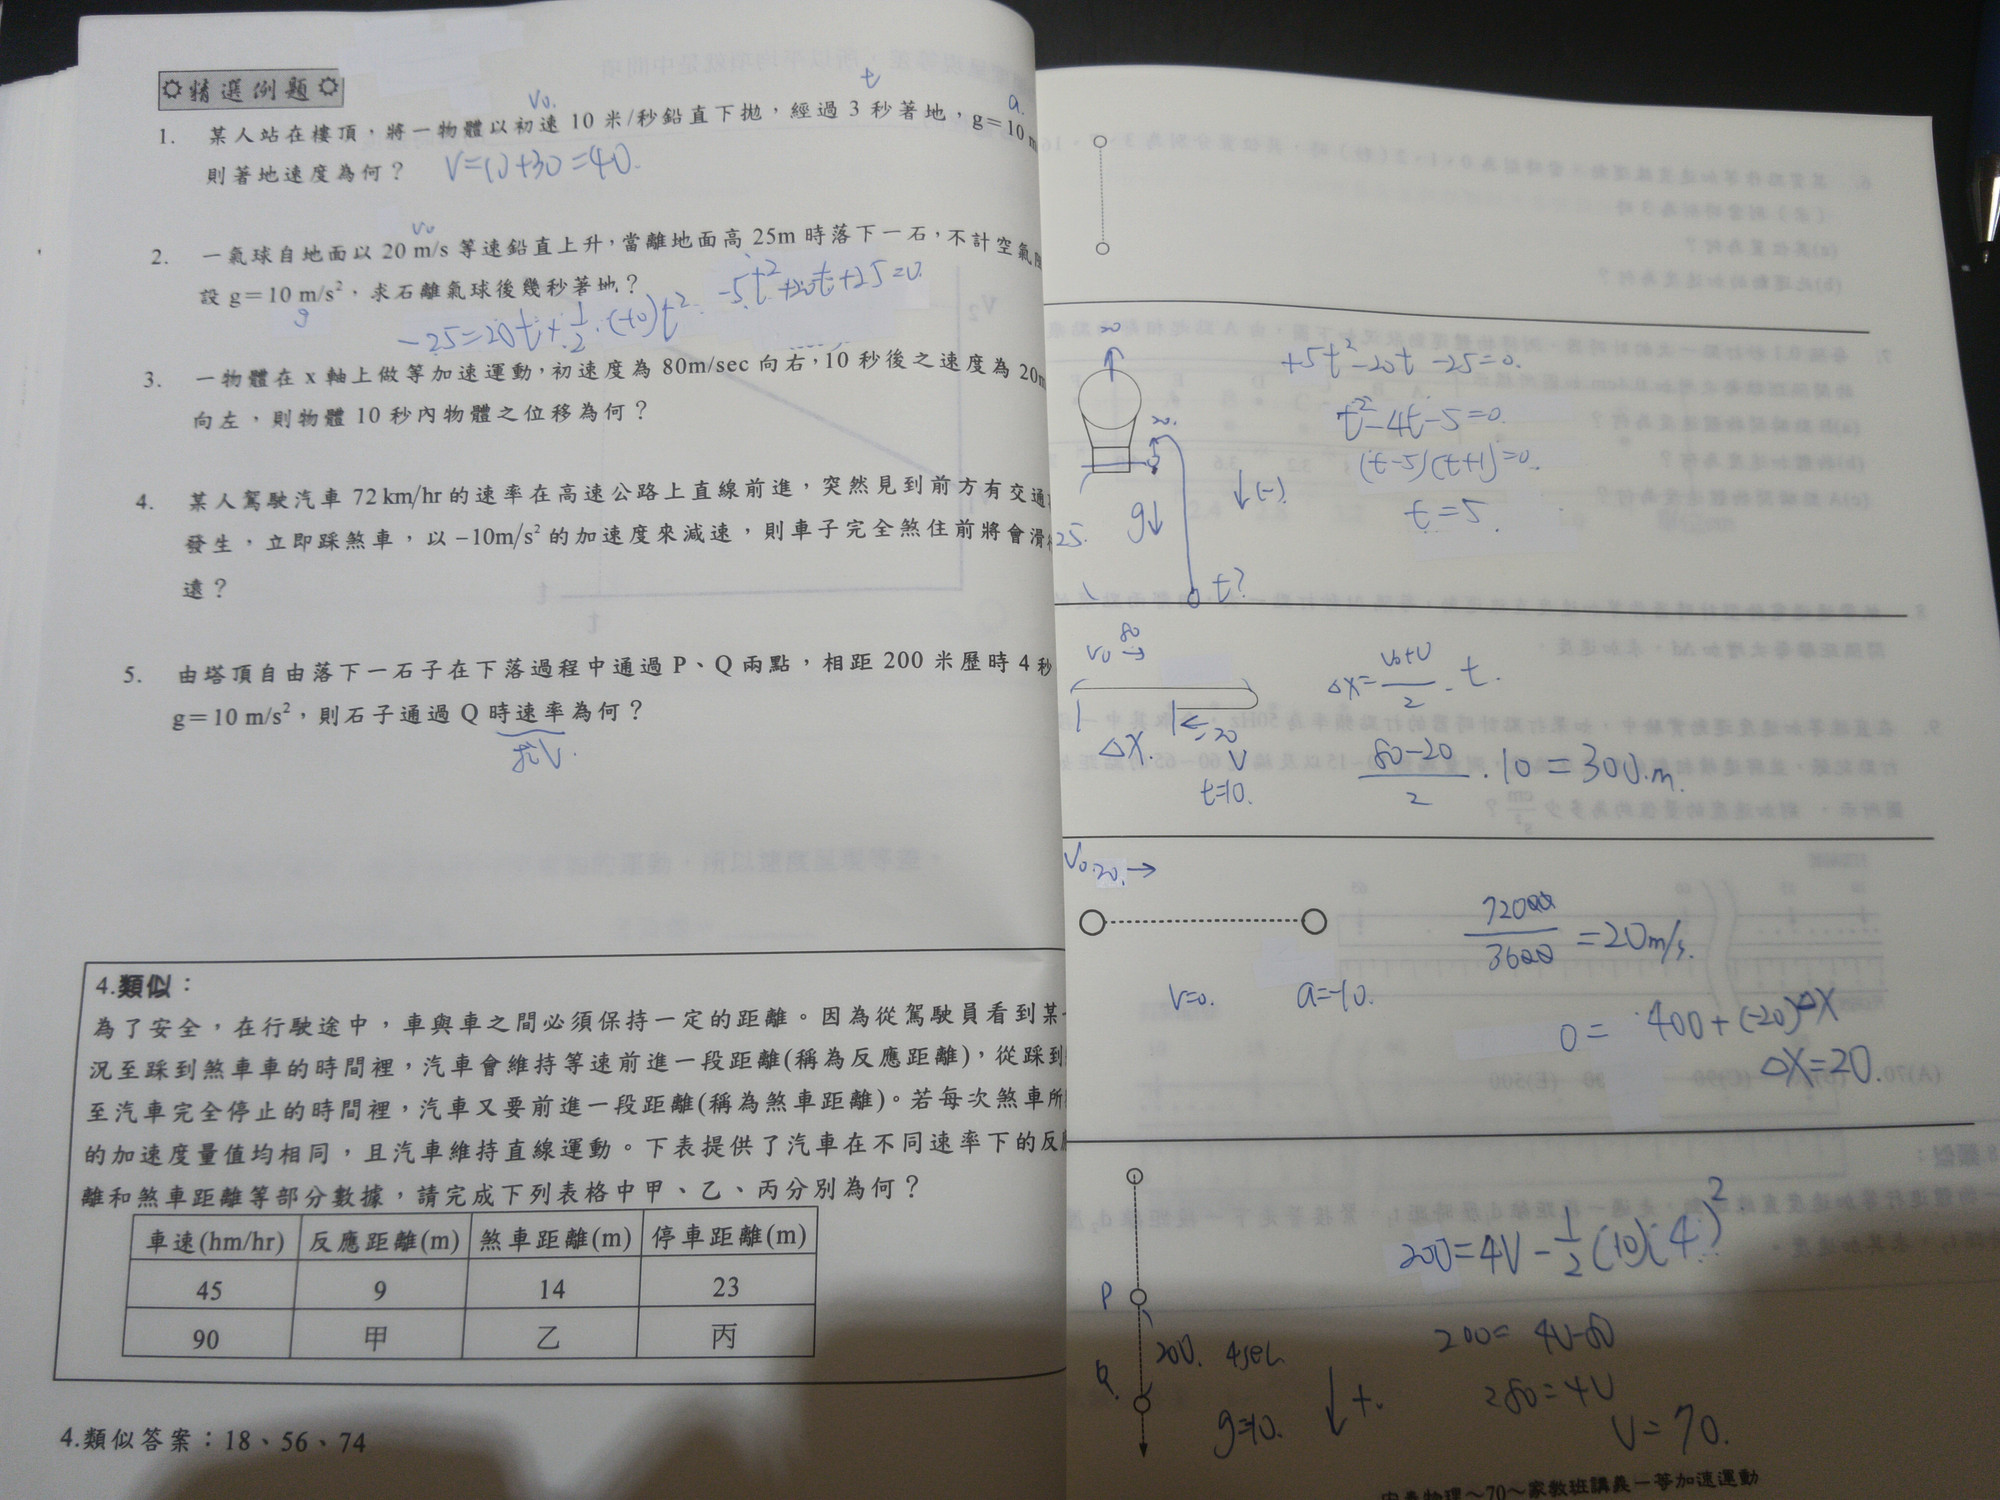 精選例題
t
V0.
a.
1. 某人站在樓頂，將一物體以初速 10 米/秒鉛直下拋，經過 3 秒著地，g＝10 m
則著地速度為何？ V=10+30=40.
V0
2. 一氣球自地面以 20 m/s 等速鉛直上升，當離地面高 25m 時落下一石，不計空氣阻
設 g＝10 m/s²，求石離氣球後幾秒著地？ -5t²+20t+25=0.
g
-25=20t+1/2·(-10)t².
3. 一物體在 x 軸上做等加速運動，初速度為 80m/sec 向右，10 秒後之速度為 20m
向左，則物體 10 秒內物體之位移為何？
4. 某人駕駛汽車 72 km/hr 的速率在高速公路上直線前進，突然見到前方有交通
發生，立即踩煞車，以 −10m/s² 的加速度來減速，則車子完全煞住前將會滑
遠？
5. 由塔頂自由落下一石子在下落過程中通過 P、Q 兩點，相距 200 米歷時 4 秒
g＝10 m/s²，則石子通過 Q 時速率為何？
4.類似：
為了安全，在行駛途中，車與車之間必須保持一定的距離。因為從駕駛員看到某
況至踩到煞車車的時間裡，汽車會維持等速前進一段距離(稱為反應距離)，從踩到
至汽車完全停止的時間裡，汽車又要前進一段距離(稱為煞車距離)。若每次煞車所
的加速度量值均相同，且汽車維持直線運動。下表提供了汽車在不同速率下的反應
離和煞車距離等部分數據，請完成下列表格中甲、乙、丙分別為何？
車速(hm/hr) 反應距離(m) 煞車距離(m) 停車距離(m)
45 9 14 23
90 甲 乙 丙
4.類似答案：18、56、74
20
+5t²-20t-25=0.
t²-4t-5=0.
20.
(t-5)(t+1)=0.
↓(-)
t=5.
g↓
25.
t?
80
V0 →
Δx=(V0+V)/2·t.
←-20
Δx.
V
(80-20)/2·10=300m.
t=10.
V0.20.→
72000/3600=20m/s.
V=0. a=-10.
0=400+(-20)Δx
Δx=20.
200=4V-1/2(10)(4)²
P
200=4V-80
200. 4sec
Q.
280=4V
g=10. ↓+.
V=70.
～70～家教班講義－等加速運動